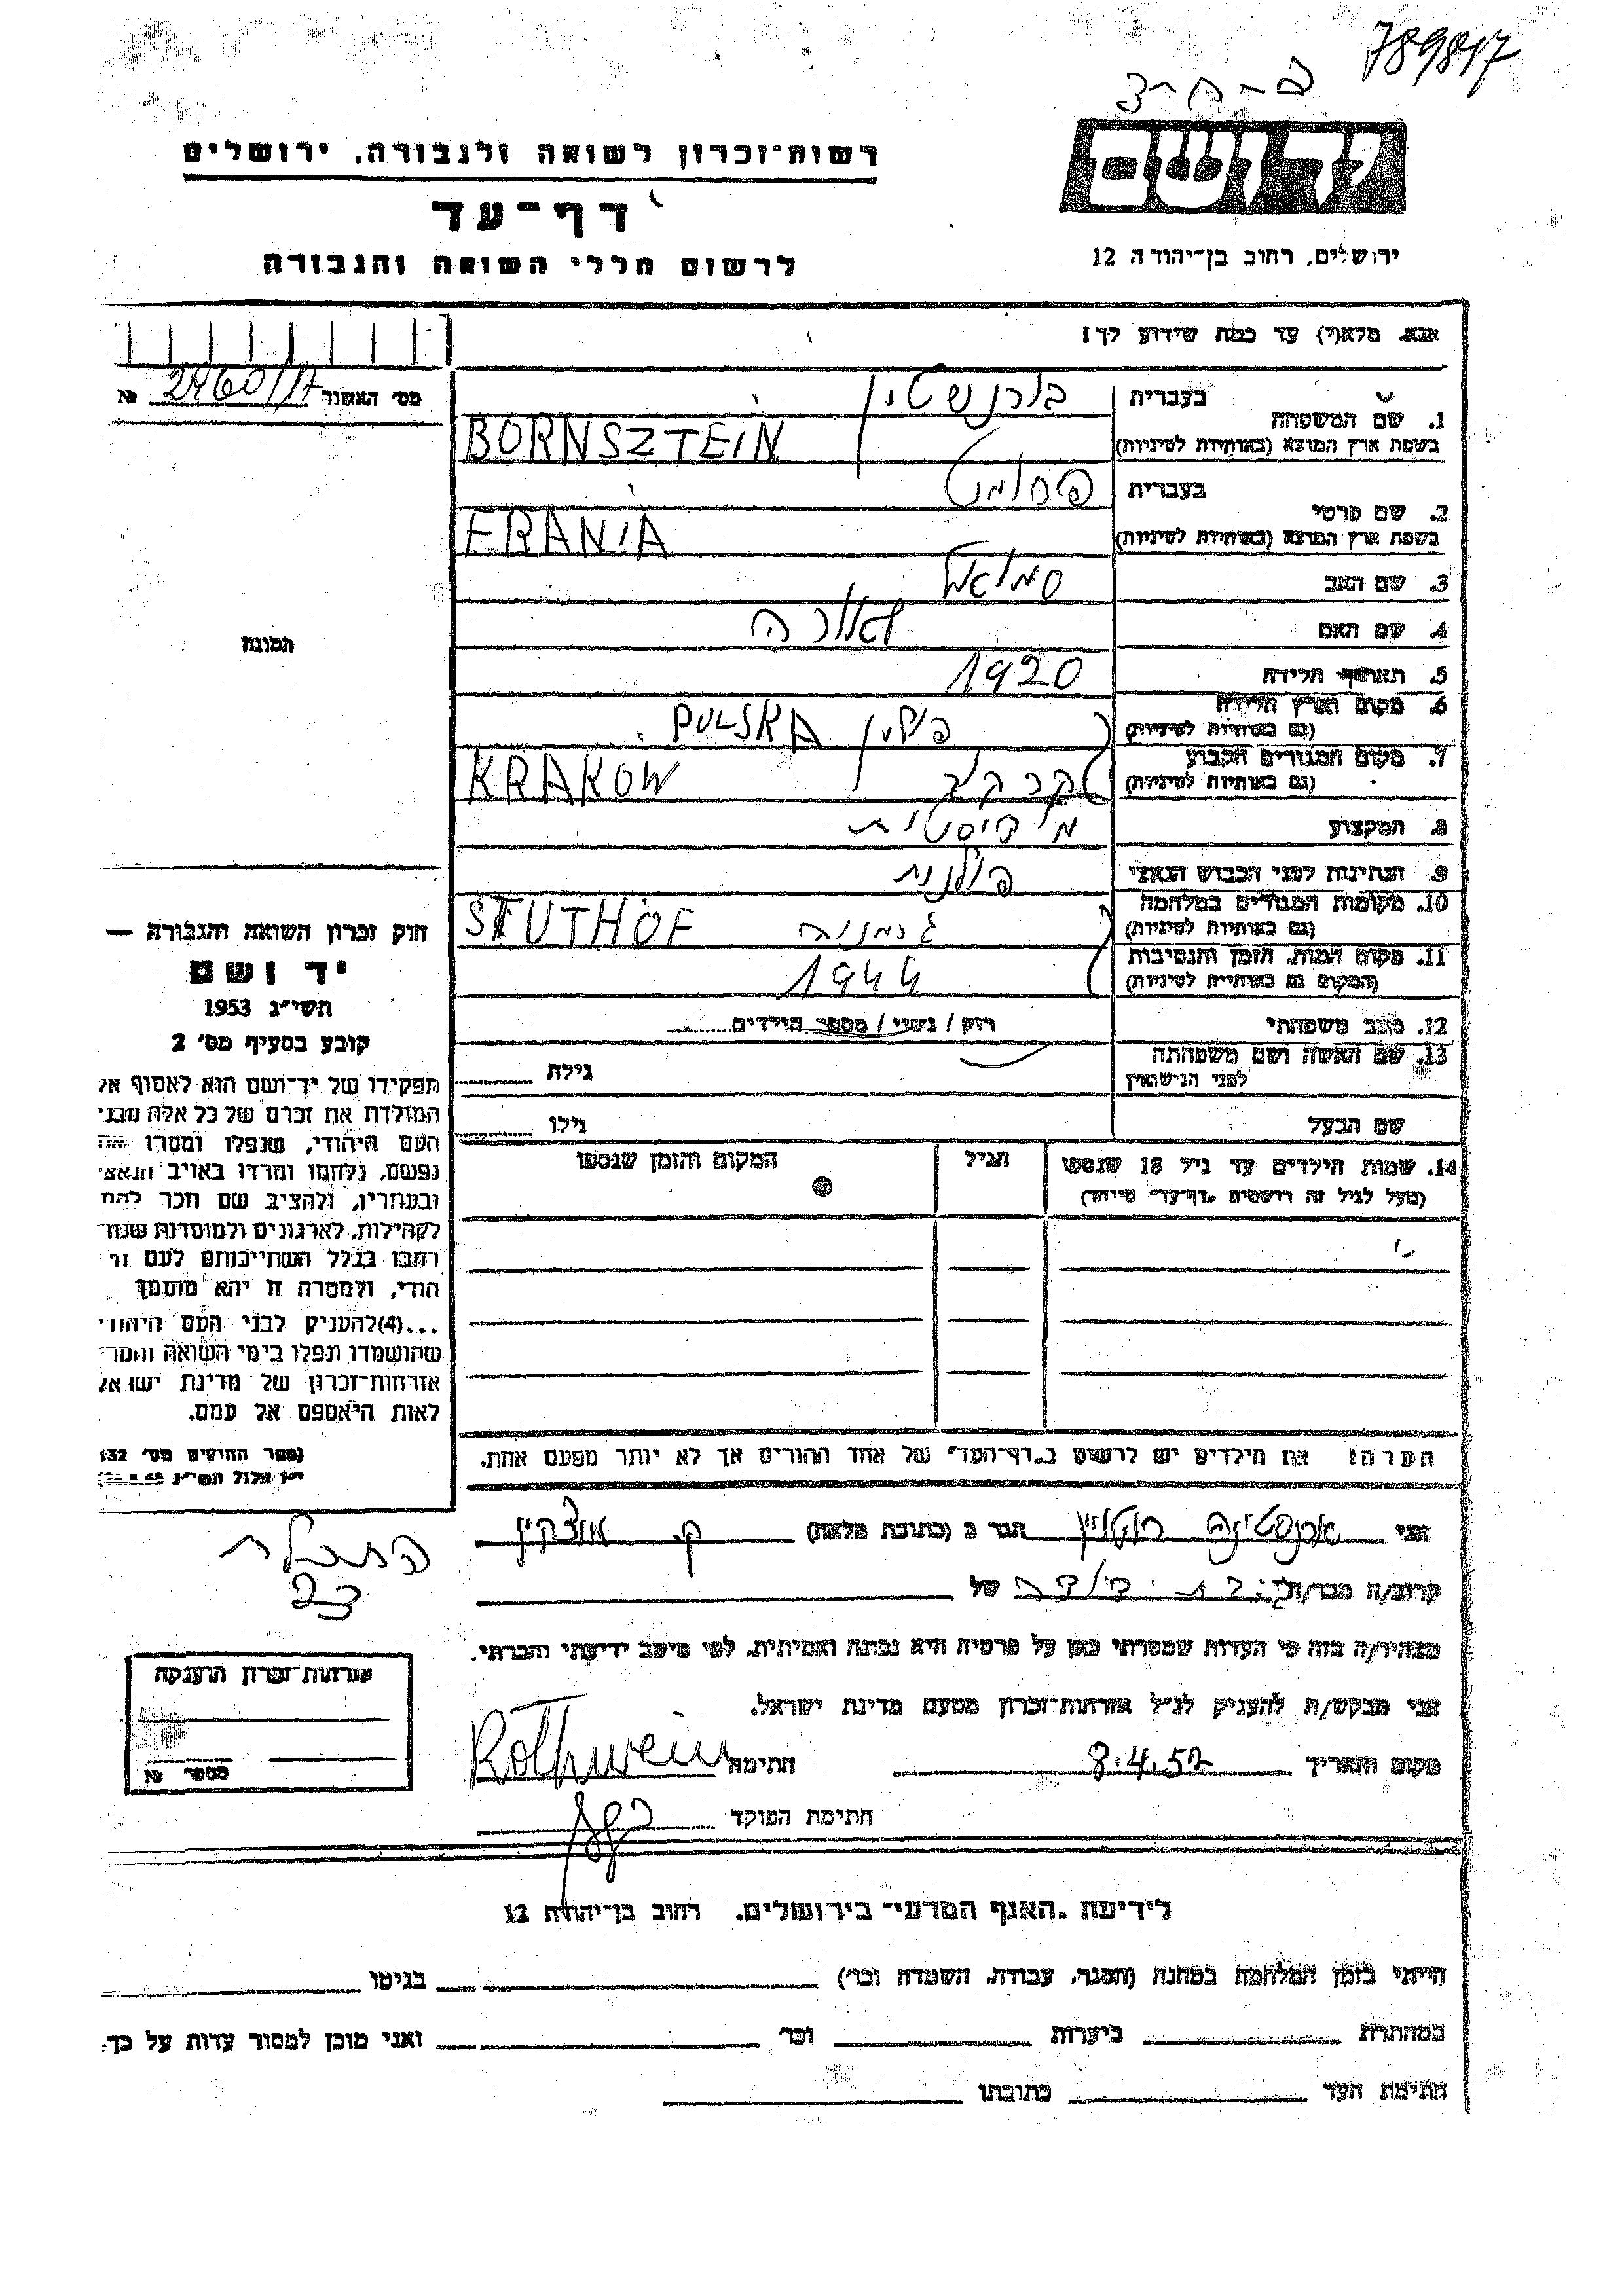 789817
רשות־זכרון לשואה ולגבורה, ירושלים
דף־עד
לרשום חללי השואה והגבורה
ירושלים, רחוב בן־יהודה 12
אנא, מלא(י) עד כמה שידוע לך!
מס׳ האשור 2460/17 №
תמונה
1. שם המשפחה
בעברית בורנשטין
בשפת ארץ המוצא (באותיות לטיניות) BORNSZTEIN
2. שם פרטי
בעברית
בשפת ארץ המוצא (באותיות לטיניות) FRANIA
3. שם האב סמואל
4. שם האם לאורה
5. תאריך הלידה 1920
6. מקום וארץ הלידה
(גם באותיות לטיניות) פולין POLSKA
7. מקום המגורים הקבוע
(גם באותיות לטיניות) קרקב KRAKOW
8. המקצוע
9. הנתינות לפני הכבוש הנאצי פולנית
10. מקומות המגורים במלחמה
(גם באותיות לטיניות) גרמניה STUTHOF
11. מקום המות, הזמן והנסיבות
(המקום גם באותיות לטיניות) 1944
12. מצב משפחתי רוק / נשוי / מספר הילדים
13. שם האשה ושם משפחתה
לפני הנישואין גילה
שם הבעל גילו
14. שמות הילדים עד גיל 18 שנספו הגיל המקום והזמן שנספו
(מעל לגיל זה רושמים „דף־עד״ מיוחד)
הערה: את הילדים יש לרשום ב„דף־העד״ של אחד ההורים אך לא יותר מפעם אחת.
חוק זכרון השואה והגבורה —
יד ושם
תשי״ג 1953
קובע בסעיף מס׳ 2
תפקידו של יד־ושם הוא לאסוף אל
המולדת את זכרם של כל אלה מבני
העם היהודי, שנפלו ומסרו את
נפשם, נלחמו ומרדו באויב הנאצי
ובעוזריו, ולהציב שם וזכר להם
לקהילות, לארגונים ולמוסדות שנח
רבו בגלל השתייכותם לעם הי
הודי, ולמטרה זו יהא מוסמך —
...(4)להעניק לבני העם היהודי
שהושמדו ונפלו בימי השואה והמר
אזרחות־זכרון של מדינת ישראל
לאות היאספם אל עמם.
(ספר החוקים מס׳ 132
אלול תשי״ג
אני ארנסטינה רוטויין הגר ב (כתובת מלאה) ק. מוצקין
23
קרוב/ה מכר/ה בת דודה של
מצהיר/ה בזה כי העדות שמסרתי כאן על פרטיה היא נכונה ואמיתית, לפי מיטב ידיעתי והכרתי.
אני מבקש/ת להעניק לנ״ל אזרחות־זכרון מטעם מדינת ישראל.
מקום ותאריך 8.4.57 חתימה Rothwein
חתימת הפוקד
אזרחות־זכרון הוענקה
מספר №
לידיעת „האגף המדעי״ בירושלים, רחוב בן־יהודה 12
הייתי בזמן המלחמה במחנה (הסגר, עבודה, השמדה וכו׳) בגיטו
במחתרת ביערות וכו׳ ואני מוכן למסור עדות על כך.
חתימת העד כתובתו